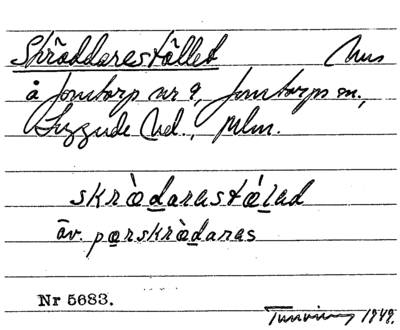 Skräddarestället hus
å Jomtorp nr 9, Jomtorps sn.,
Luggude hd., Mlm.
skrȁdarastálad
äv. pærskrȁdaras
Nr 5683.
1948.